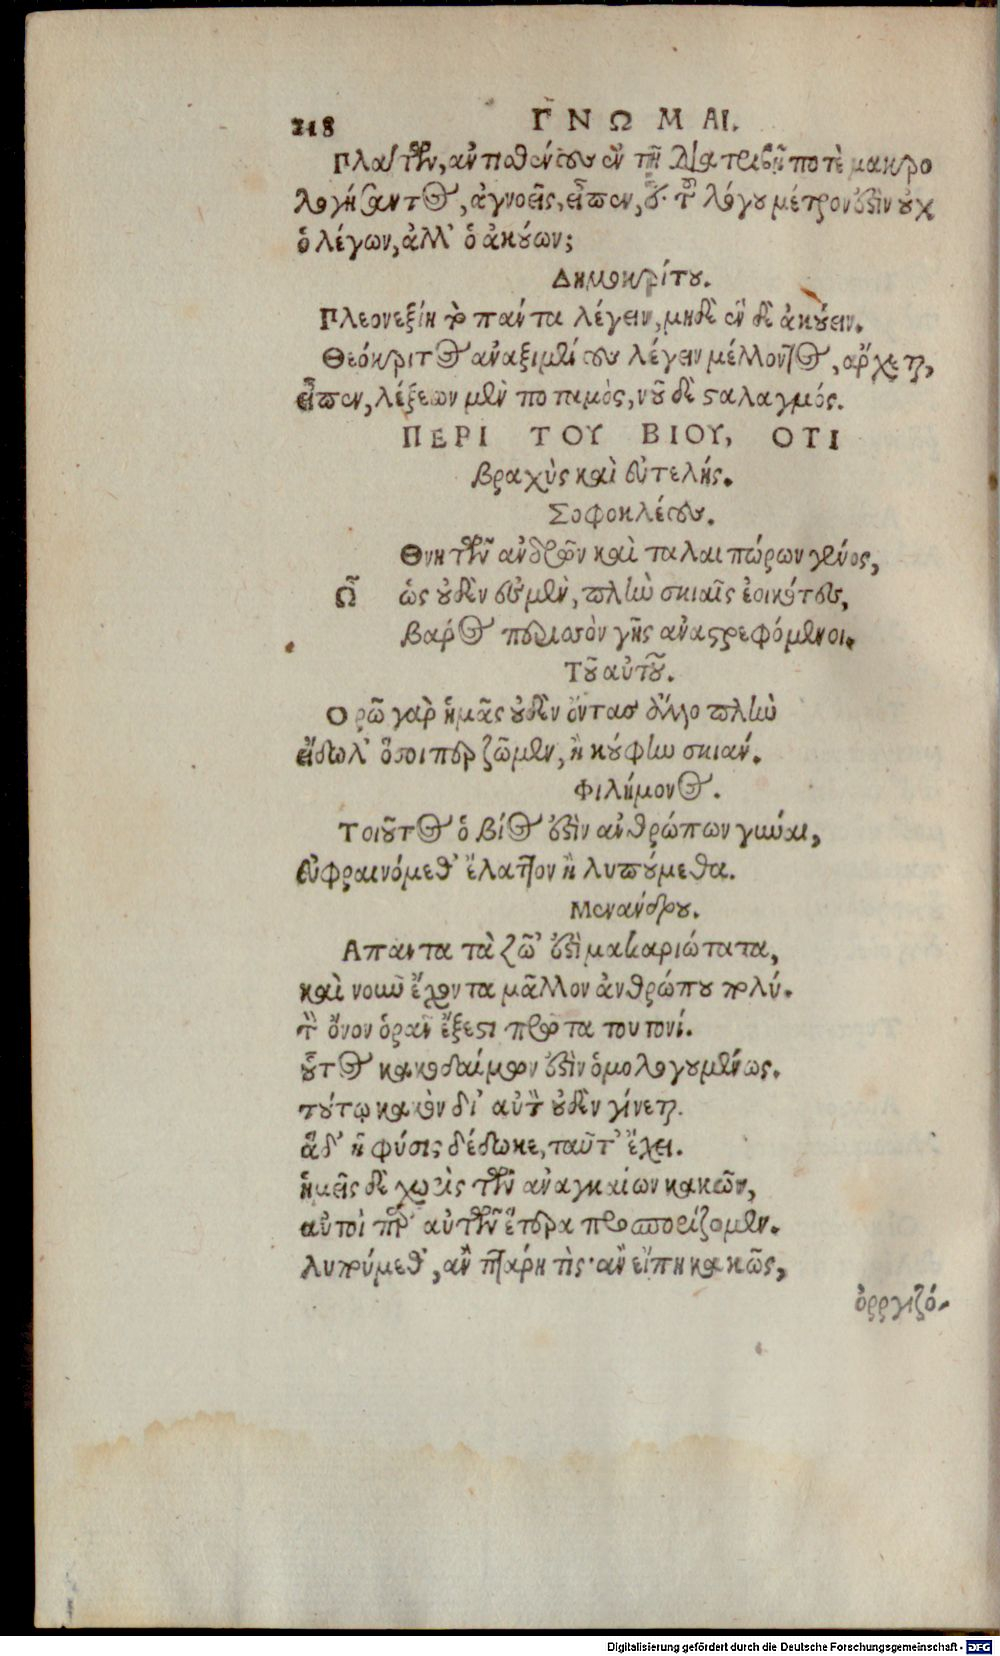 218 ΓΝΩΜΑΙ.
Πλάτων, ἀντισθένους ἐν τῇ διατριβῇ ποτὲ μακρο
λογήσαντος, ἀγνοεῖς, εἶπεν, ὅτι τοῦ λόγου μέτρον ἐστὶν οὐχ
ὁ λέγων, ἀλλ' ὁ ἀκούων;
Δημοκρίτου.
Πλεονεξίη τὸ πάντα λέγειν, μηδὲν δὲ ἀκούειν.
Θεόκριτος ἀναξιμένους λέγειν μέλλοντος, ἄρχεται,
εἶπεν, λέξεων μὲν ποταμὸς, νοῦ δὲ σταλαγμός.
ΠΕΡΙ ΤΟΥ ΒΙΟΥ, ΟΤΙ
βραχὺς καὶ εὐτελής.
Σοφοκλέους.
Ὦ Θνητῶν ἀνδρῶν καὶ ταλαιπώρων γένος,
ὡς οὐδὲν ἐσμὲν, πλὴν σκιαῖς ἐοικότες,
βάρος περισσὸν γῆς ἀναστρεφόμενοι.
Τοῦ αὐτοῦ.
Ὁρῶ γὰρ ἡμᾶς οὐδὲν ὄντας ἄλλο πλὴν
εἴδωλ' ὅσοιπερ ζῶμεν, ἢ κούφην σκιάν.
Φιλήμονος.
Τοιοῦτος ὁ βίος ἐστὶν ἀνθρώπων γύναι,
εὐφραινόμεθ' ἔλαττον ἢ λυπούμεθα.
Μενάνδρου.
Απαντα τὰ ζῶ' ἐστὶ μακαριώτατα,
καὶ νοῦν ἔχοντα μᾶλλον ἀνθρώπου πολύ.
τὸν ὄνον ὁρᾶν ἔξεστι πρῶτα τουτονί.
οὗτος κακοδαίμων ἐστὶν ὁμολογουμένως.
τούτῳ κακὸν δι' αὐτὸν οὐδὲν γίνεται.
ἃ δ' ἡ φύσις δέδωκε, ταῦτ' ἔχει.
ἡμεῖς δὲ χωρὶς τῶν ἀναγκαίων κακῶν,
αὐτοὶ παρ' αὐτῶν ἕτερα προσπορίζομεν.
λυπούμεθ', ἂν πτάρῃ τὶς· ἂν εἴπῃ κακῶς,
ὀργιζό-
Digitalisierung gefördert durch die Deutsche Forschungsgemeinschaft - DFG